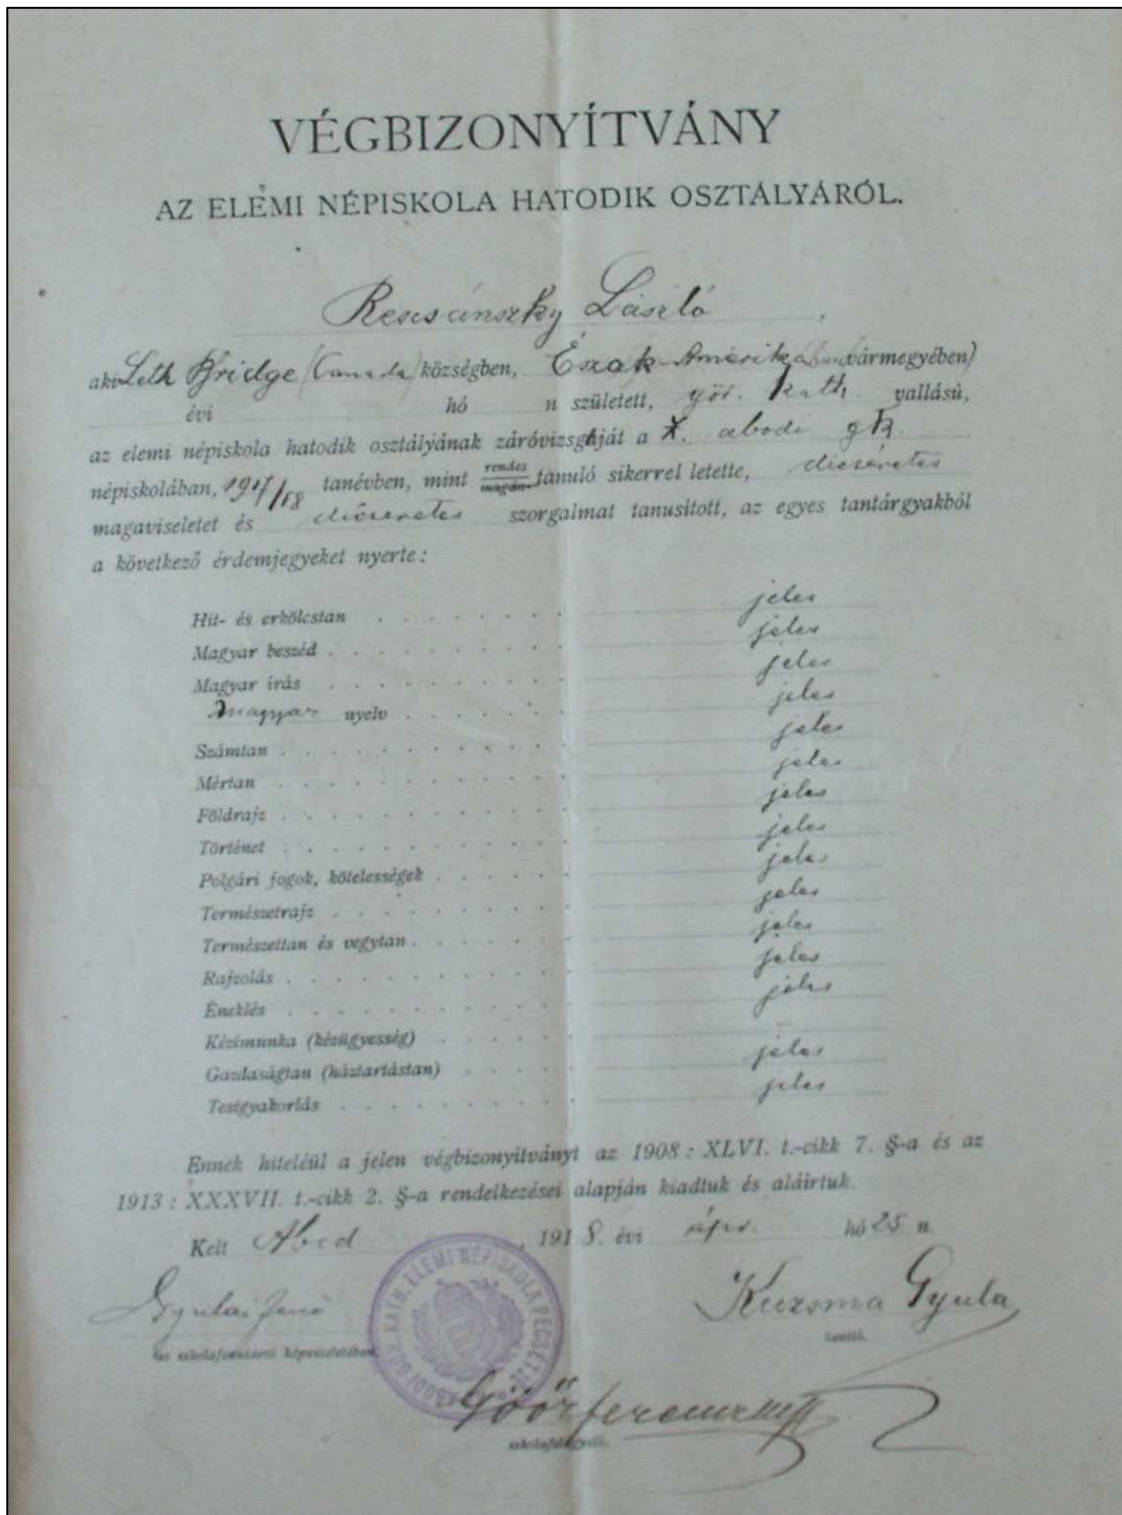 VÉGBIZONYÍTVÁNY
AZ ELEMI NÉPISKOLA HATODIK OSZTÁLYÁRÓL.
Rescsánszky László
aki Leth Bridge (Canada) községben, Észak-Amerikában vármegyében)
évi hó n született, gör. kath. vallású,
az elemi népiskola hatodik osztályának záróvizsgáját a abodi gk.
népiskolában, 1917/18 tanévben, mint rendes magán- tanuló sikerrel letette, dicséretes
magaviseletet és dicséretes szorgalmat tanusított, az egyes tantárgyakból
a következő érdemjegyeket nyerte:
Hit- és erkölcstan jeles
Magyar beszéd jeles
Magyar írás jeles
magyar nyelv jeles
Számtan jeles
Mértan jeles
Földrajz jeles
Történet jeles
Polgári jogok, kötelességek jeles
Természetrajz jeles
Természettan és vegytan jeles
Rajzolás jeles
Éneklés jeles
Kézimunka (kézügyesség)
Gazdaságtan (háztartástan) jeles
Testgyakorlás jeles
Ennek hiteléül a jelen végbizonyítványt az 1908: XLVI. t.-cikk 7. §-a és az
1913: XXXVII. t.-cikk 2. §-a rendelkezései alapján kiadtuk és aláirtuk.
Kelt Abod, 1918. évi ápr. hó 25 n.
Gyulai Jenő
az iskolafenntartó képviseletében.
Kuzsma Gyula
tanító.
ABODI GÖR. KATH. ELEMI NÉPISKOLA PECSÉTJE
Göőz ferencz